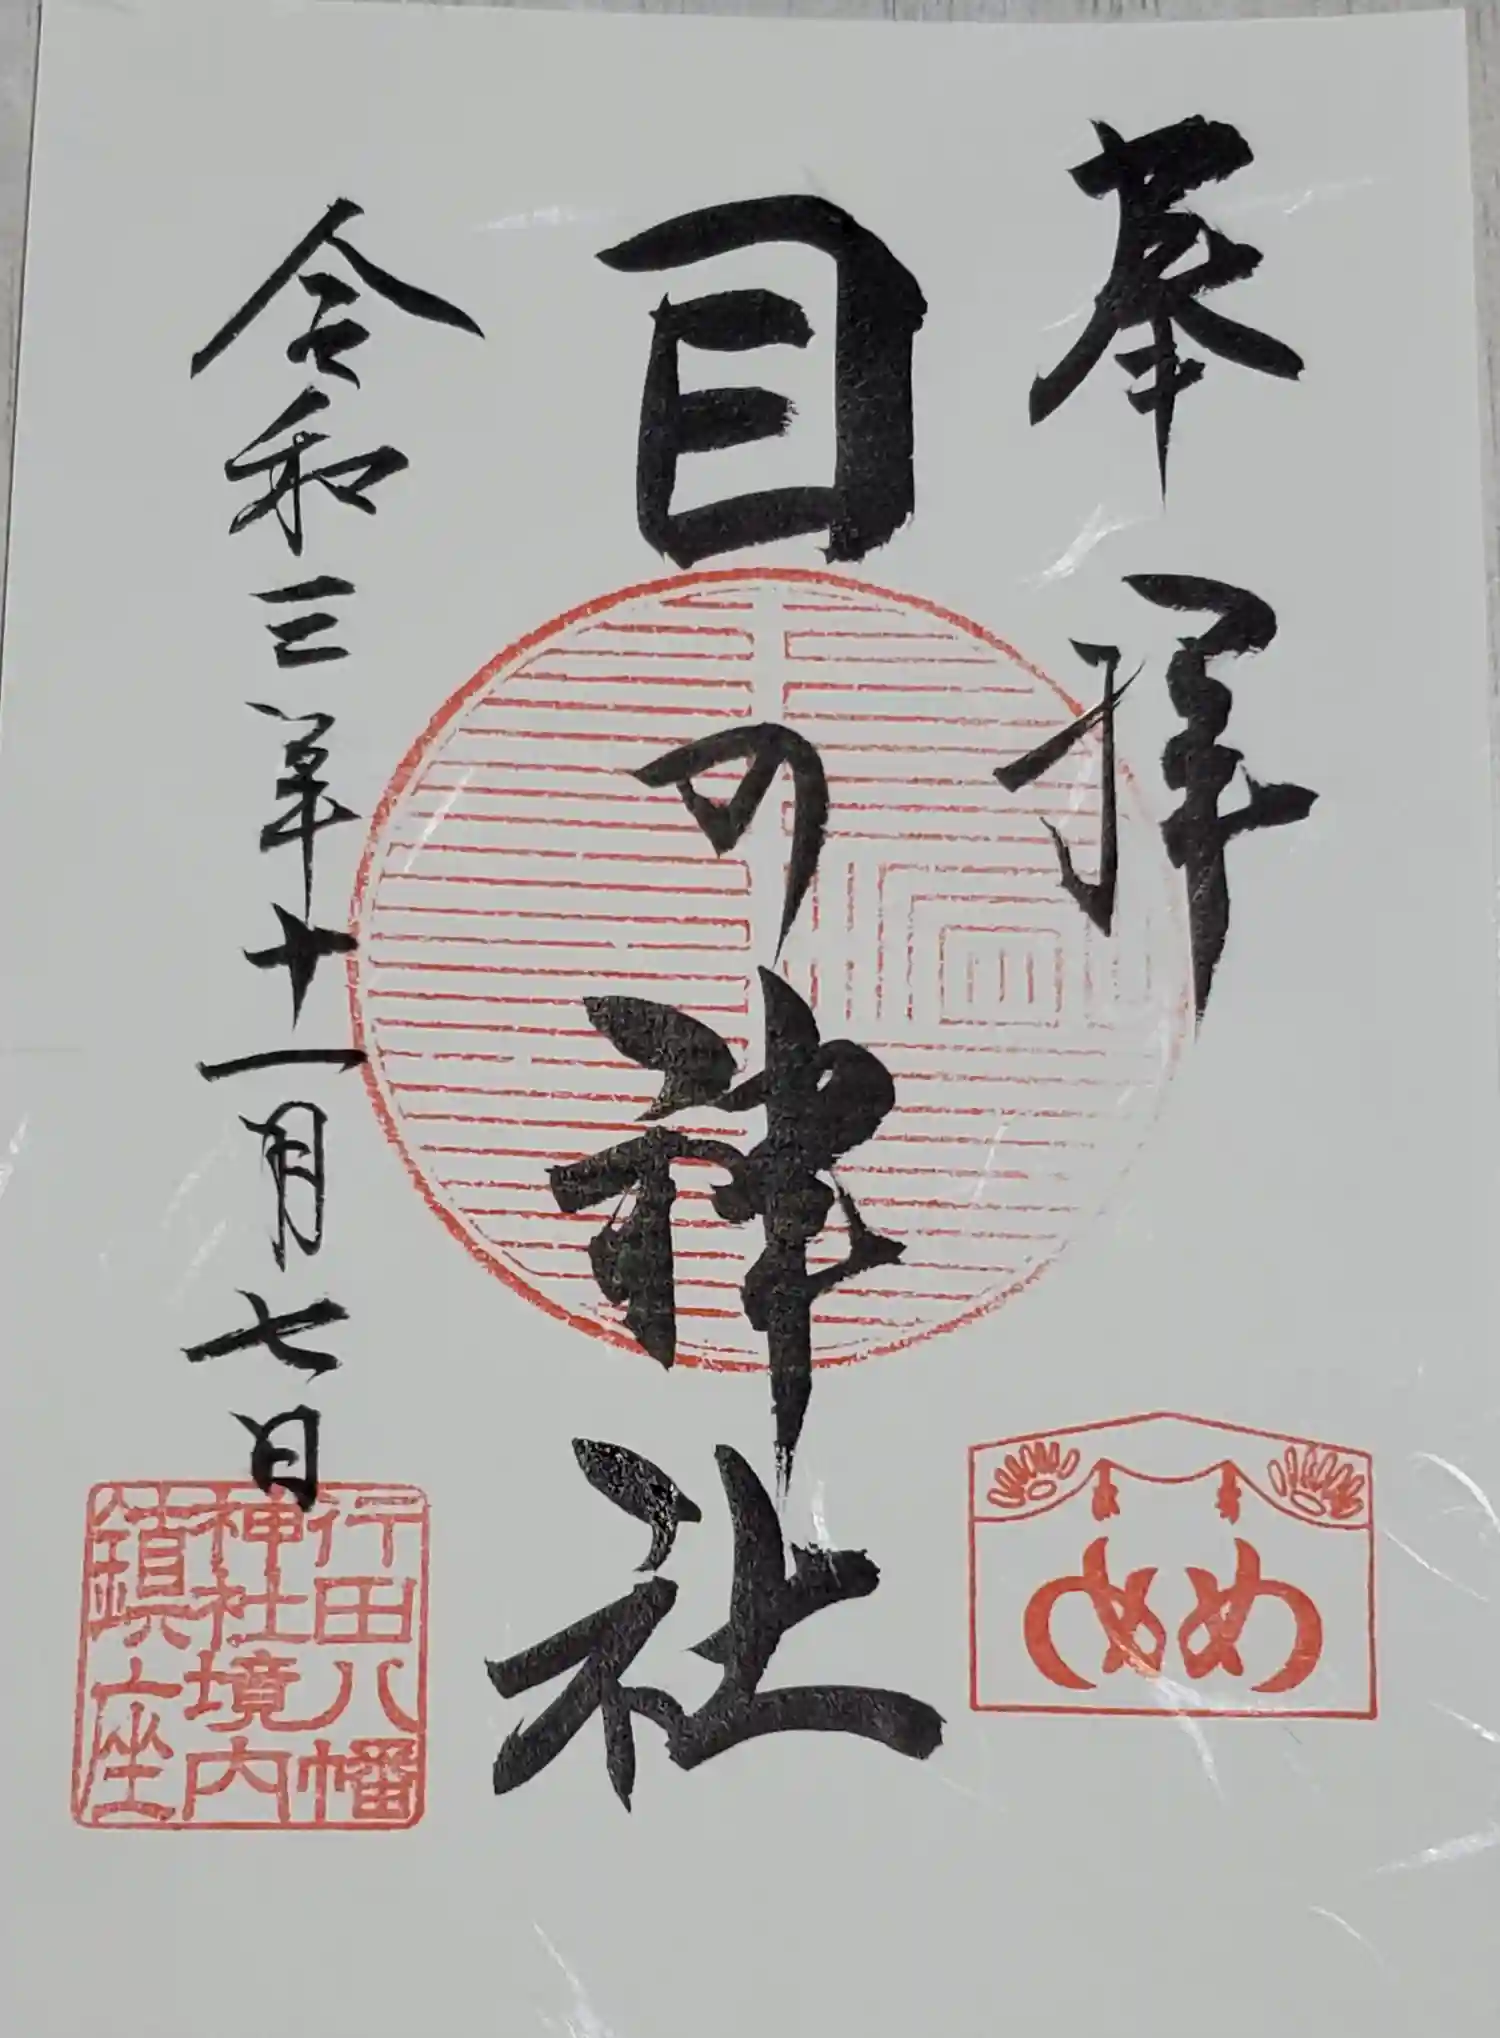 奉拝
目の神社
令和三年十一月七日
行田八幡
神社境内
鎮座
め め